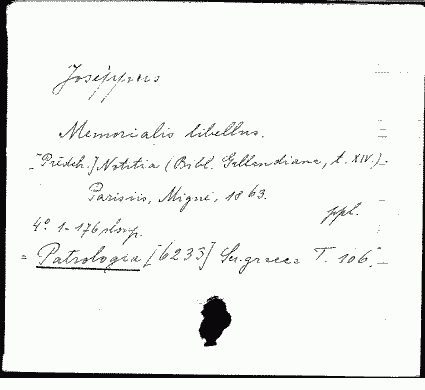 Joseppus
Memorialis libellus.
[Předch.] Notitia (Bibl. Gallandiana, t. XIV.)
Parisiis, Migne, 1863.
ppl.
4° 1-176 sloup.
= Patrologia [6233] Ser. graeca T. 106.